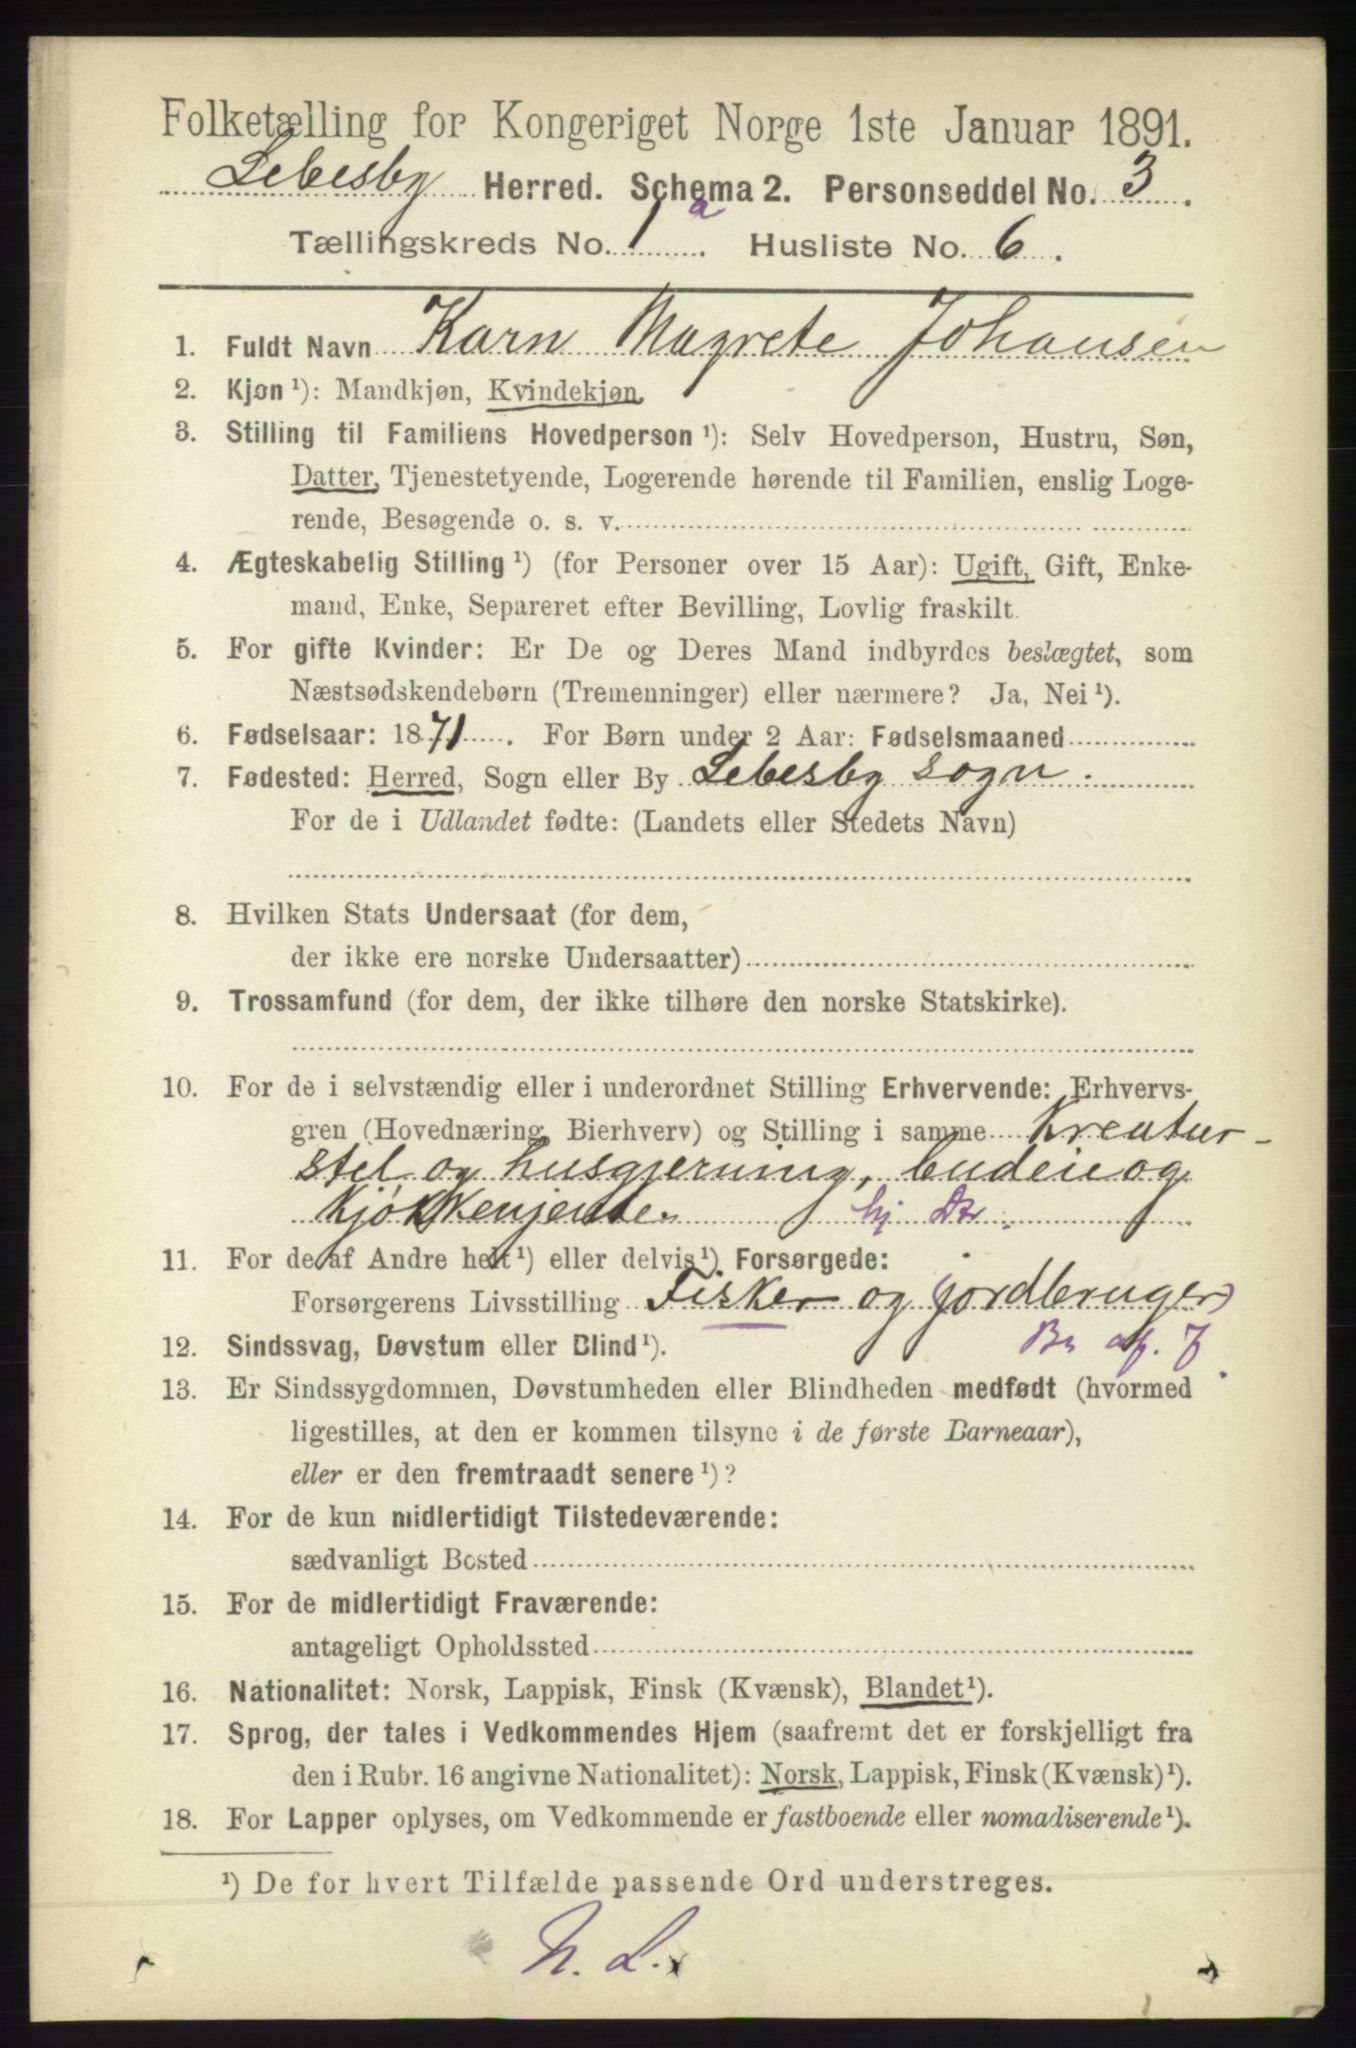 Folketælling for Kongeriget Norge 1ste Januar 1891.
Lebesby Herred. Schema 2. Personseddel No. 3.
Tællingskreds No. 1 a. Husliste No. 6.
1. Fuldt Navn Karn Magrete Johansen
2. Kjøn ¹): Mandkjøn, Kvindekjøn.
3. Stilling til Familiens Hovedperson ¹): Selv Hovedperson, Hustru, Søn,
Datter, Tjenestetyende, Logerende hørende til Familien, enslig Loge-
rende, Besøgende o. s. v.
4. Ægteskabelig Stilling ¹) (for Personer over 15 Aar): Ugift, Gift, Enke-
mand, Enke, Separeret efter Bevilling, Lovlig fraskilt.
5. For gifte Kvinder: Er De og Deres Mand indbyrdes beslægtet, som
Næstsødskendebørn (Tremenninger) eller nærmere? Ja, Nei ¹).
6. Fødselsaar: 1871. For Børn under 2 Aar: Fødselsmaaned
7. Fødested: Herred, Sogn eller By Lebesby sogn.
For de i Udlandet fødte: (Landets eller Stedets Navn)
8. Hvilken Stats Undersaat (for dem,
der ikke ere norske Undersaatter)
9. Trossamfund (for dem, der ikke tilhøre den norske Statskirke).
10. For de i selvstændig eller i underordnet Stilling Erhvervende: Erhvervs-
gren (Hovednæring, Bierhverv) og Stilling i samme Kreatur-
stel og husgjerning, budeie og
kjøkkenjente. hj Dtr.
11. For de af Andre helt ¹) eller delvis ¹) Forsørgede:
Forsørgerens Livsstilling Fisker og (jordbruger)
12. Sindssvag, Døvstum eller Blind ¹). Bn af. F.
13. Er Sindssygdommen, Døvstumheden eller Blindheden medfødt (hvormed
ligestilles, at den er kommen tilsyne i de første Barneaar),
eller er den fremtraadt senere ¹)?
14. For de kun midlertidigt Tilstedeværende:
sædvanligt Bosted
15. For de midlertidigt Fraværende:
antageligt Opholdssted
16. Nationalitet: Norsk, Lappisk, Finsk (Kvænsk), Blandet ¹).
17. Sprog, der tales i Vedkommendes Hjem (saafremt det er forskjelligt fra
den i Rubr. 16 angivne Nationalitet): Norsk, Lappisk, Finsk (Kvænsk) ¹).
18. For Lapper oplyses, om Vedkommende er fastboende eller nomadiserende ¹).
¹) De for hvert Tilfælde passende Ord understreges.
N. L.